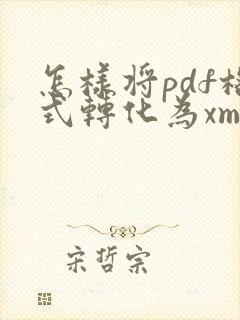 怎樣將pdf格
式轉化為xm
宋哲宗